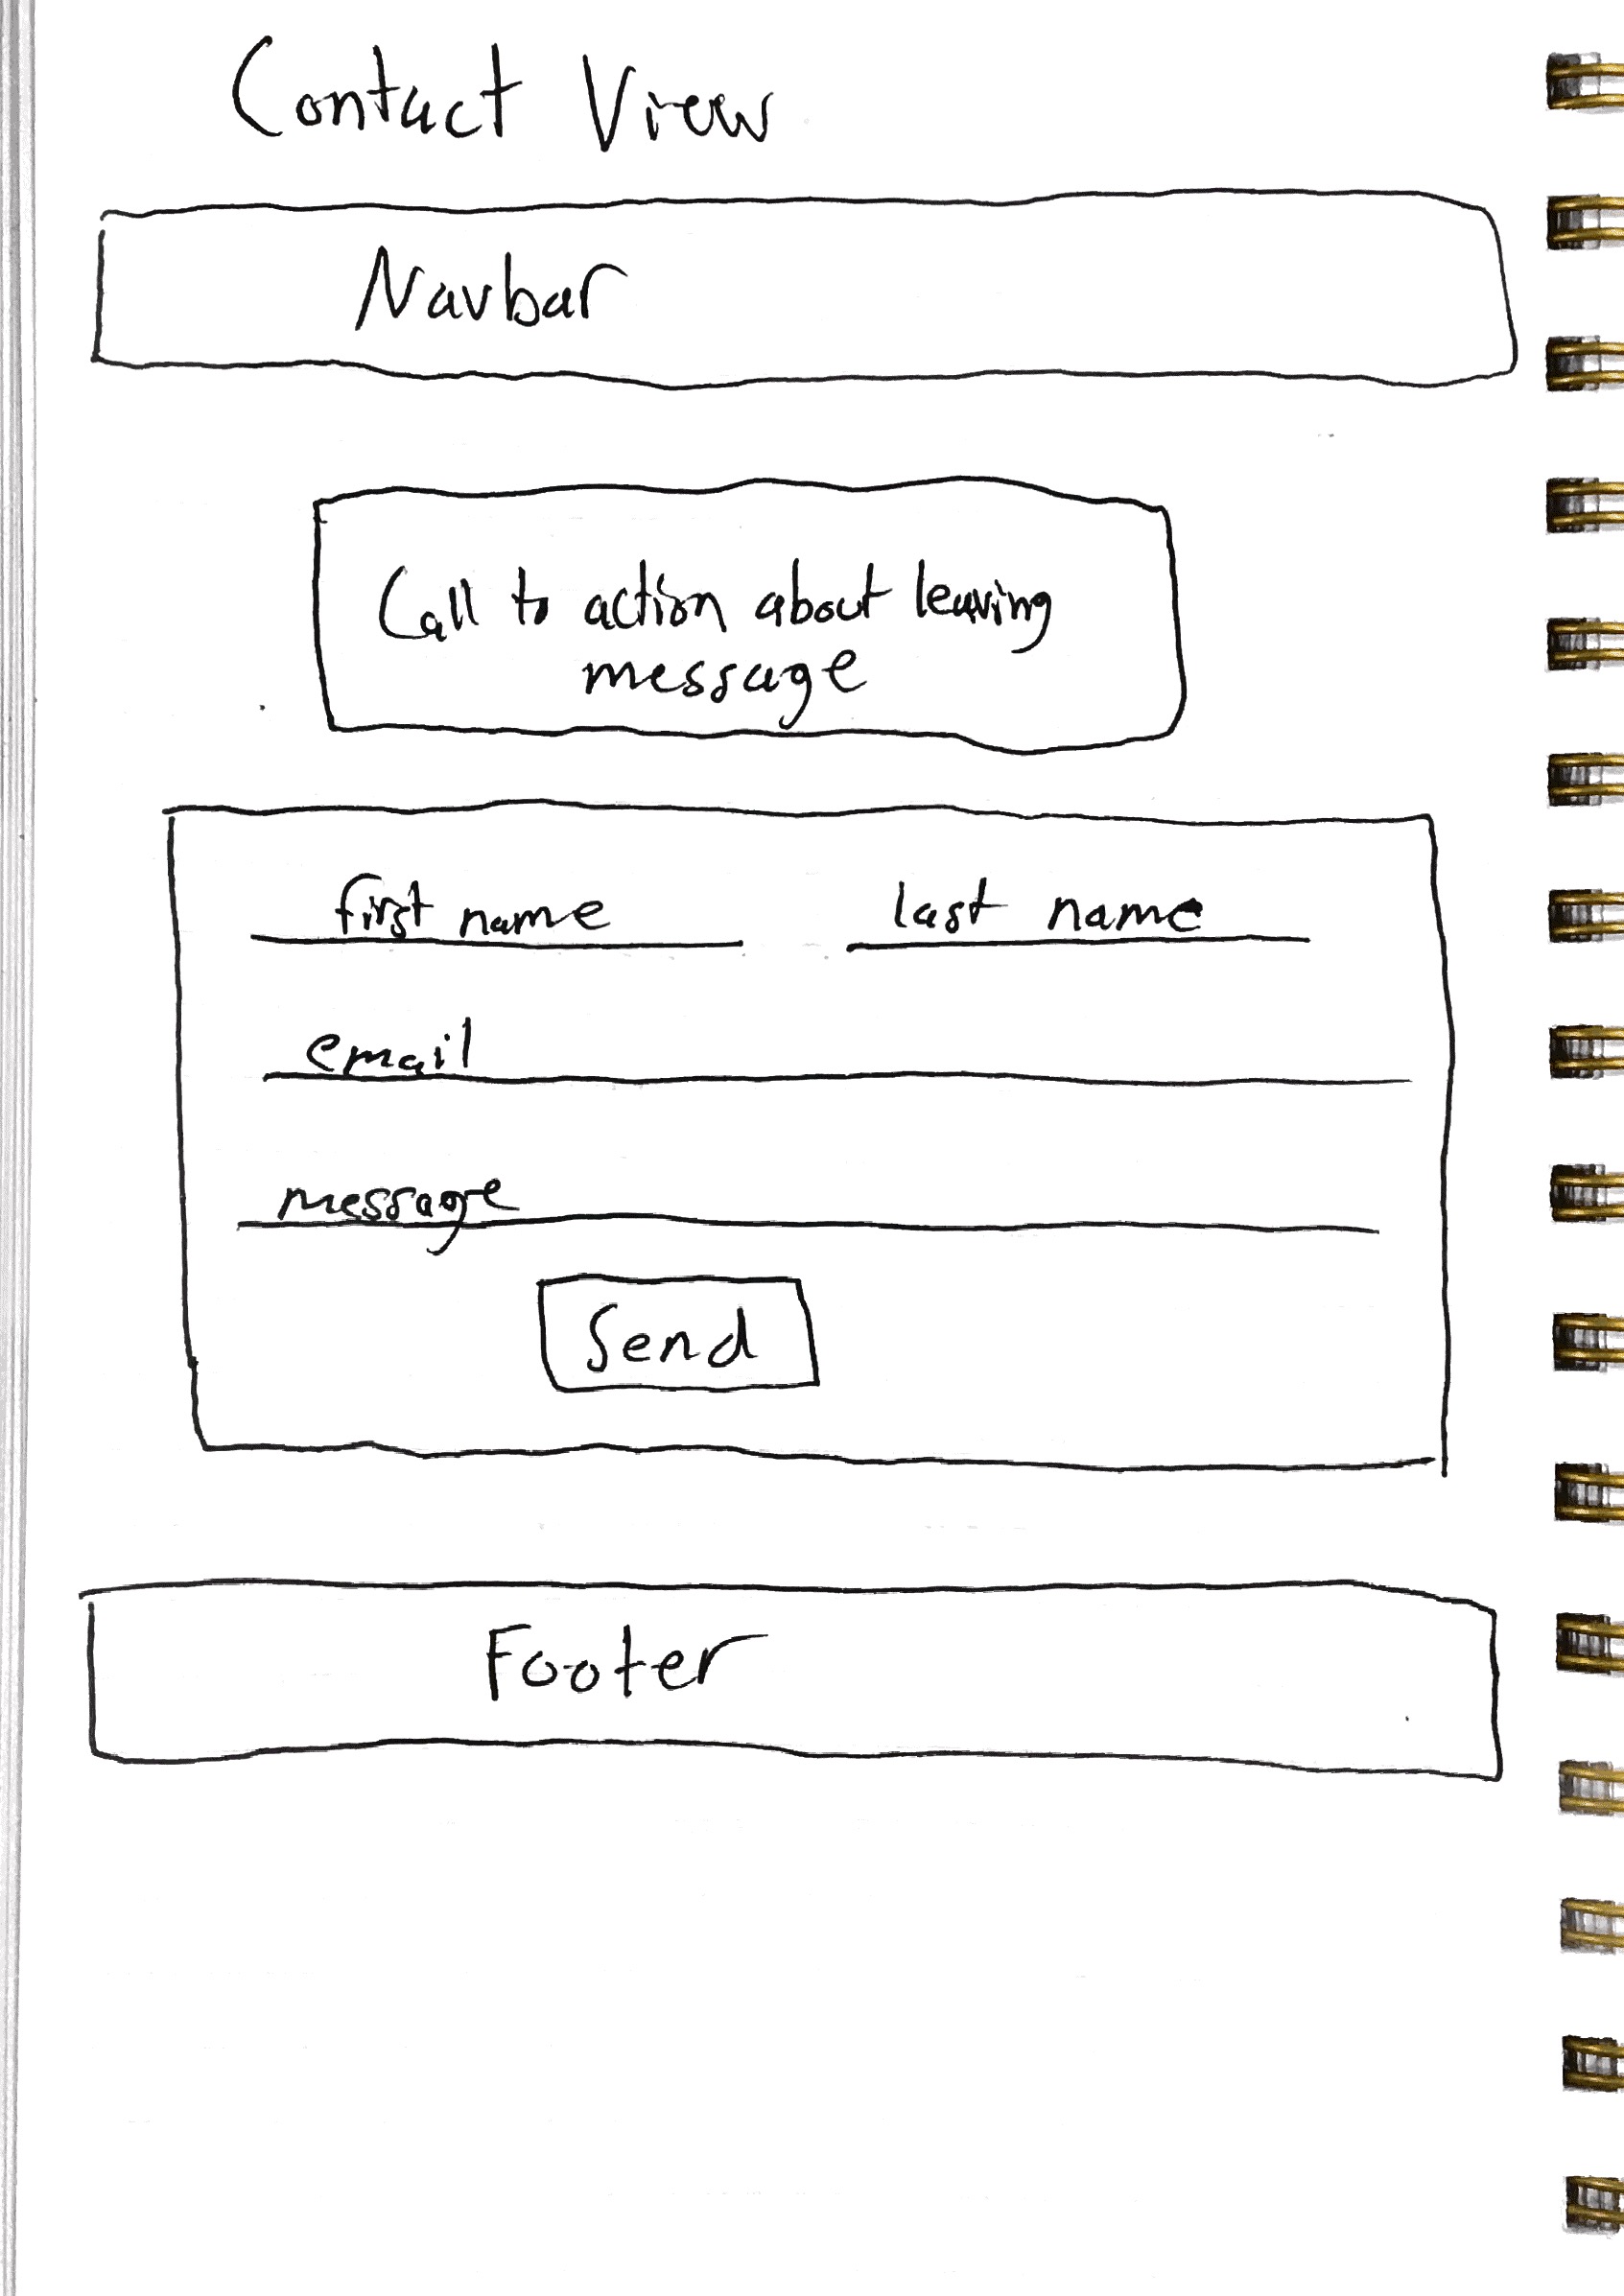 Contact View
Navbar
Call to action about leaving
message
first name last name
email
message
Send
Footer